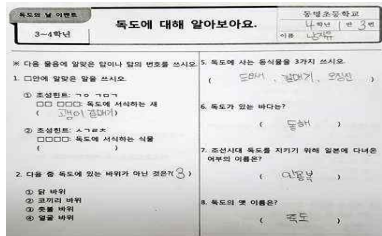 독도의 날 이벤트
3~4학년
독도에 대해 알아보아요.
동명초등학교
4학년 반 3번
이름
※ 다음 물음에 알맞은 답이나 답의 번호를 쓰시오.
1. □안에 알맞은 말을 쓰시오.
① 초성힌트: ㄱㅇ ㄱㅁㄱ
□□ □□□: 독도에 서식하는 새
( 괭이 갈매기 )
② 초성힌트: ㅅㄱㄹㅊ
□□□□: 독도에 서식하는 식물
( )
2. 다음 중 독도에 있는 바위가 아닌 것은?( 3 )
① 닭 바위
② 코끼리 바위
③ 촛불 바위
④ 얼굴 바위
5. 독도에 사는 동식물을 3가지 쓰시오.
( 갈매기, 오징어 )
6. 독도가 있는 바다는?
( 동해 )
7. 조선시대 독도를 지키기 위해 일본에 다녀온
어부의 이름은?
( 안용복 )
8. 독도의 옛 이름은?
(